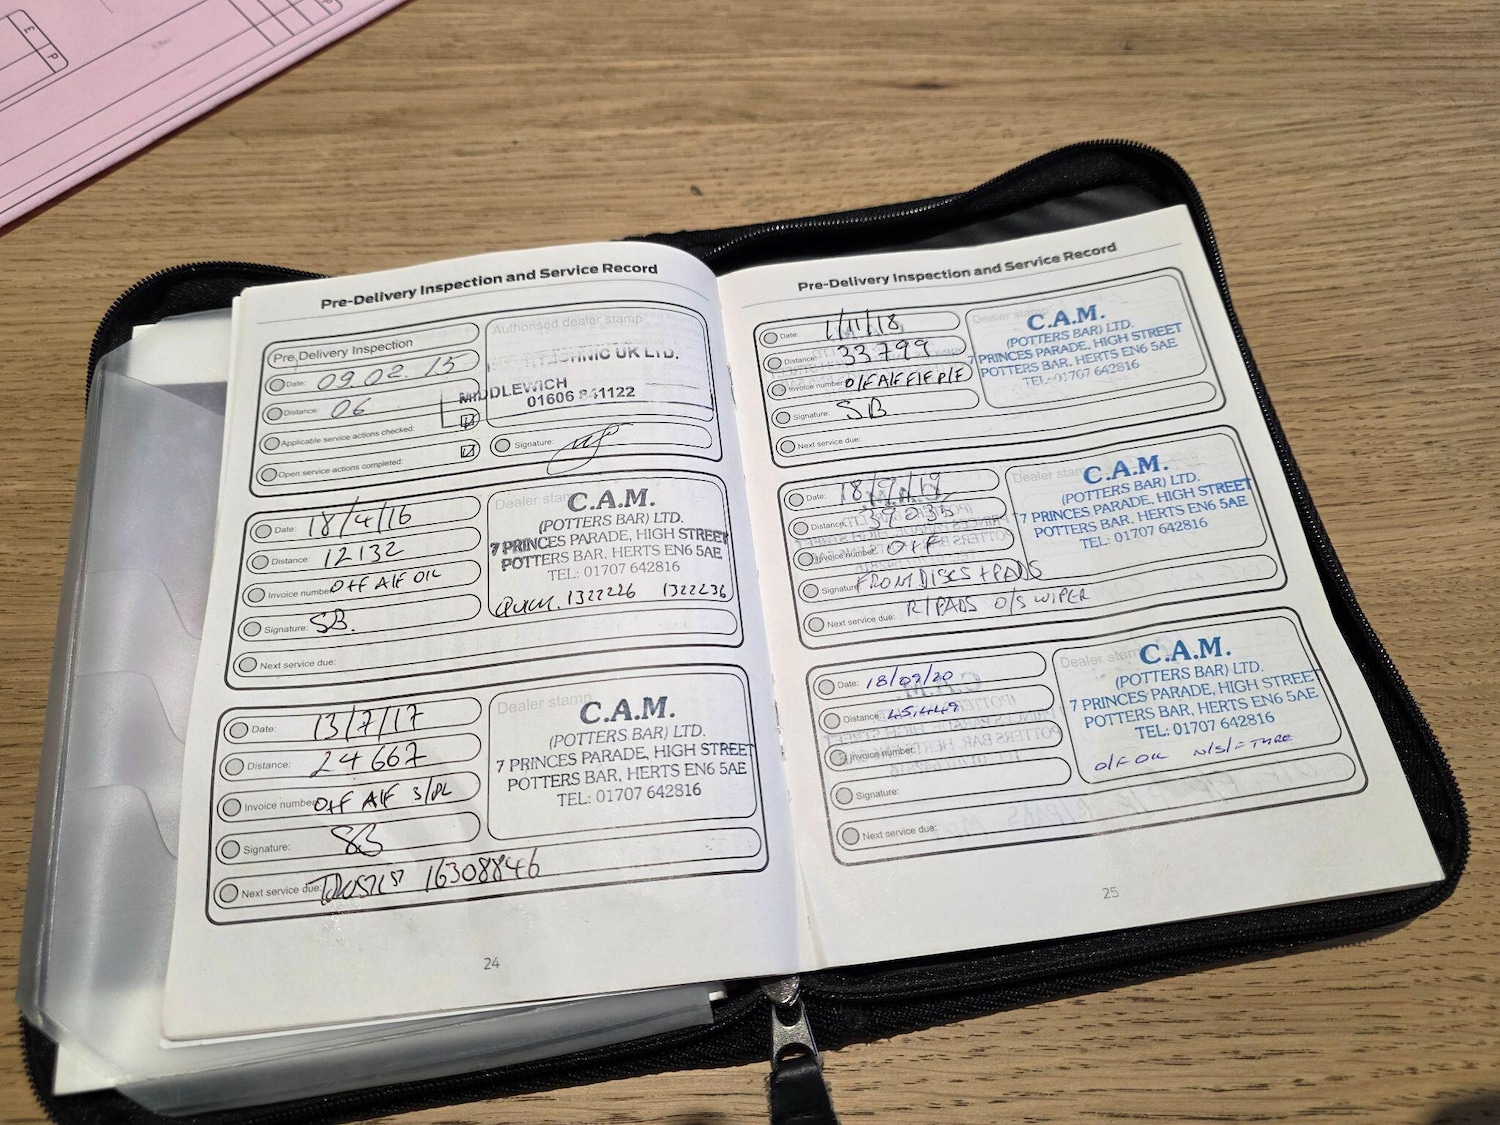 £ P
Pre-Delivery Inspection and Service Record
Pre Delivery Inspection
Date: 09.02.15
Distance: 06
Applicable service actions checked:
Open service actions completed:
Authorised dealer stamp
TECHNIC UK LTD.
MIDDLEWICH
01606 841122
Signature:
Date: 18/4/16
Distance: 12132
Invoice number O+F A/F OIL
Signature: SB.
Next service due:
Dealer stamp
C.A.M.
(POTTERS BAR) LTD.
7 PRINCES PARADE, HIGH STREET
POTTERS BAR, HERTS EN6 5AE
TEL: 01707 642816
1322226 1322236
Date: 13/7/17
Distance: 24667
Invoice number O+F A/F S/PL
Signature: SB
Next service due: 16308846
Dealer stamp
C.A.M.
(POTTERS BAR) LTD.
7 PRINCES PARADE, HIGH STREET
POTTERS BAR, HERTS EN6 5AE
TEL: 01707 642816
24
Pre-Delivery Inspection and Service Record
Date: 1/11/18
Distance: 33799
Invoice number O/F A/F F/F P/F
Signature: SB
Next service due:
Dealer stamp
C.A.M.
(POTTERS BAR) LTD.
7 PRINCES PARADE, HIGH STREET
POTTERS BAR, HERTS EN6 5AE
TEL: 01707 642816
Date:
Distance:
Invoice number: O+F
Signature FRONT DISCS + PADS
Next service due: R/PADS O/S WIPER
Dealer stamp
C.A.M.
(POTTERS BAR) LTD.
7 PRINCES PARADE, HIGH STREET
POTTERS BAR, HERTS EN6 5AE
TEL: 01707 642816
Date: 18/09/20
Distance: 45,449
Invoice number:
Signature:
Next service due:
Dealer stamp
C.A.M.
(POTTERS BAR) LTD.
7 PRINCES PARADE, HIGH STREET
POTTERS BAR, HERTS EN6 5AE
TEL: 01707 642816
O/F OIL N/S/F TYRE
25